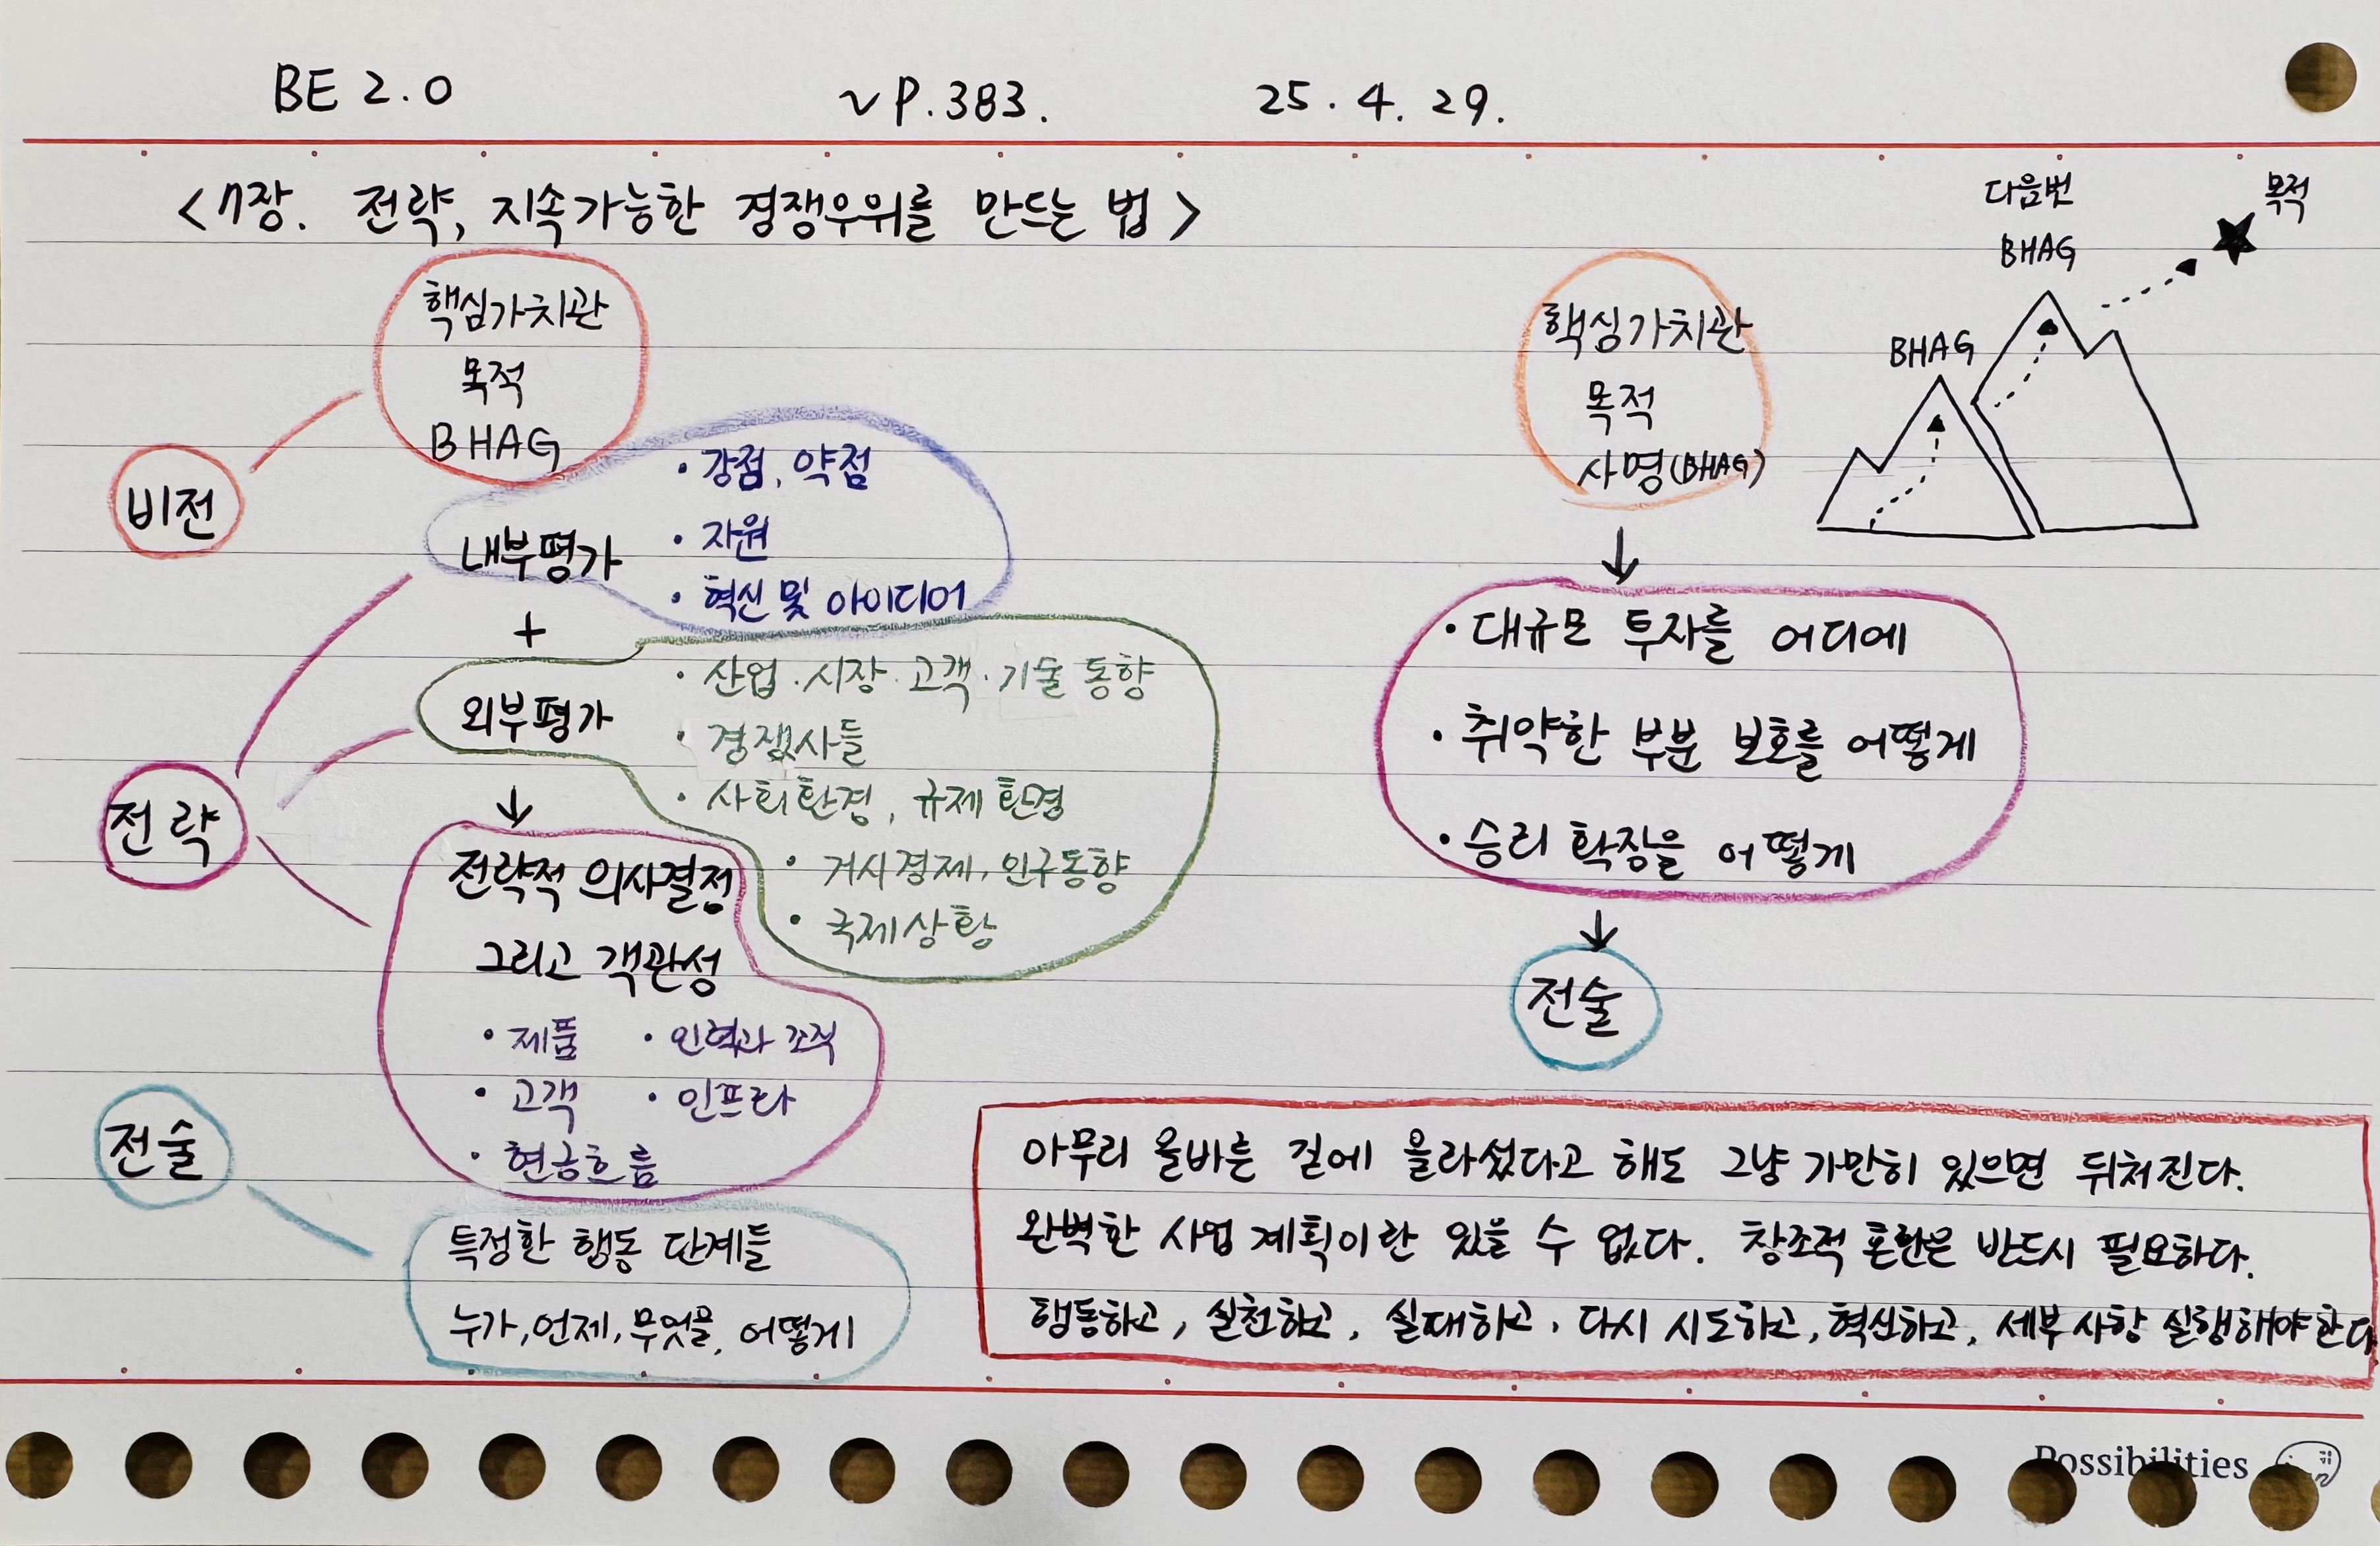 BE 2.0
~P.383.
25. 4. 29.
<7장. 전략, 지속가능한 경쟁우위를 만드는 법>
비전
핵심가치관
목적
BHAG
전략
내부평가
· 강점, 약점
· 자원
· 혁신 및 아이디어
+
외부평가
· 산업·시장·고객·기술 동향
· 경쟁사들
· 사회환경, 규제환경
· 거시경제, 인구동향
· 국제상황
↓
전략적 의사결정
그리고 객관성
· 제품
· 고객
· 현금흐름
· 인력과 조직
· 인프라
전술
특정한 행동 단계들
누가, 언제, 무엇을, 어떻게
핵심가치관
목적
사명(BHAG)
↓
· 대규모 투자를 어디에
· 취약한 부분 보호를 어떻게
· 승리 확장을 어떻게
↓
전술
BHAG
다음번
BHAG
목적
아무리 올바른 길에 올라섰다고 해도 그냥 가만히 있으면 뒤처진다.
완벽한 사업 계획이란 있을 수 없다. 창조적 혼란은 반드시 필요하다.
행동하고, 실천하고, 실패하고, 다시 시도하고, 혁신하고, 세부사항 실행해야한다
Possibilities